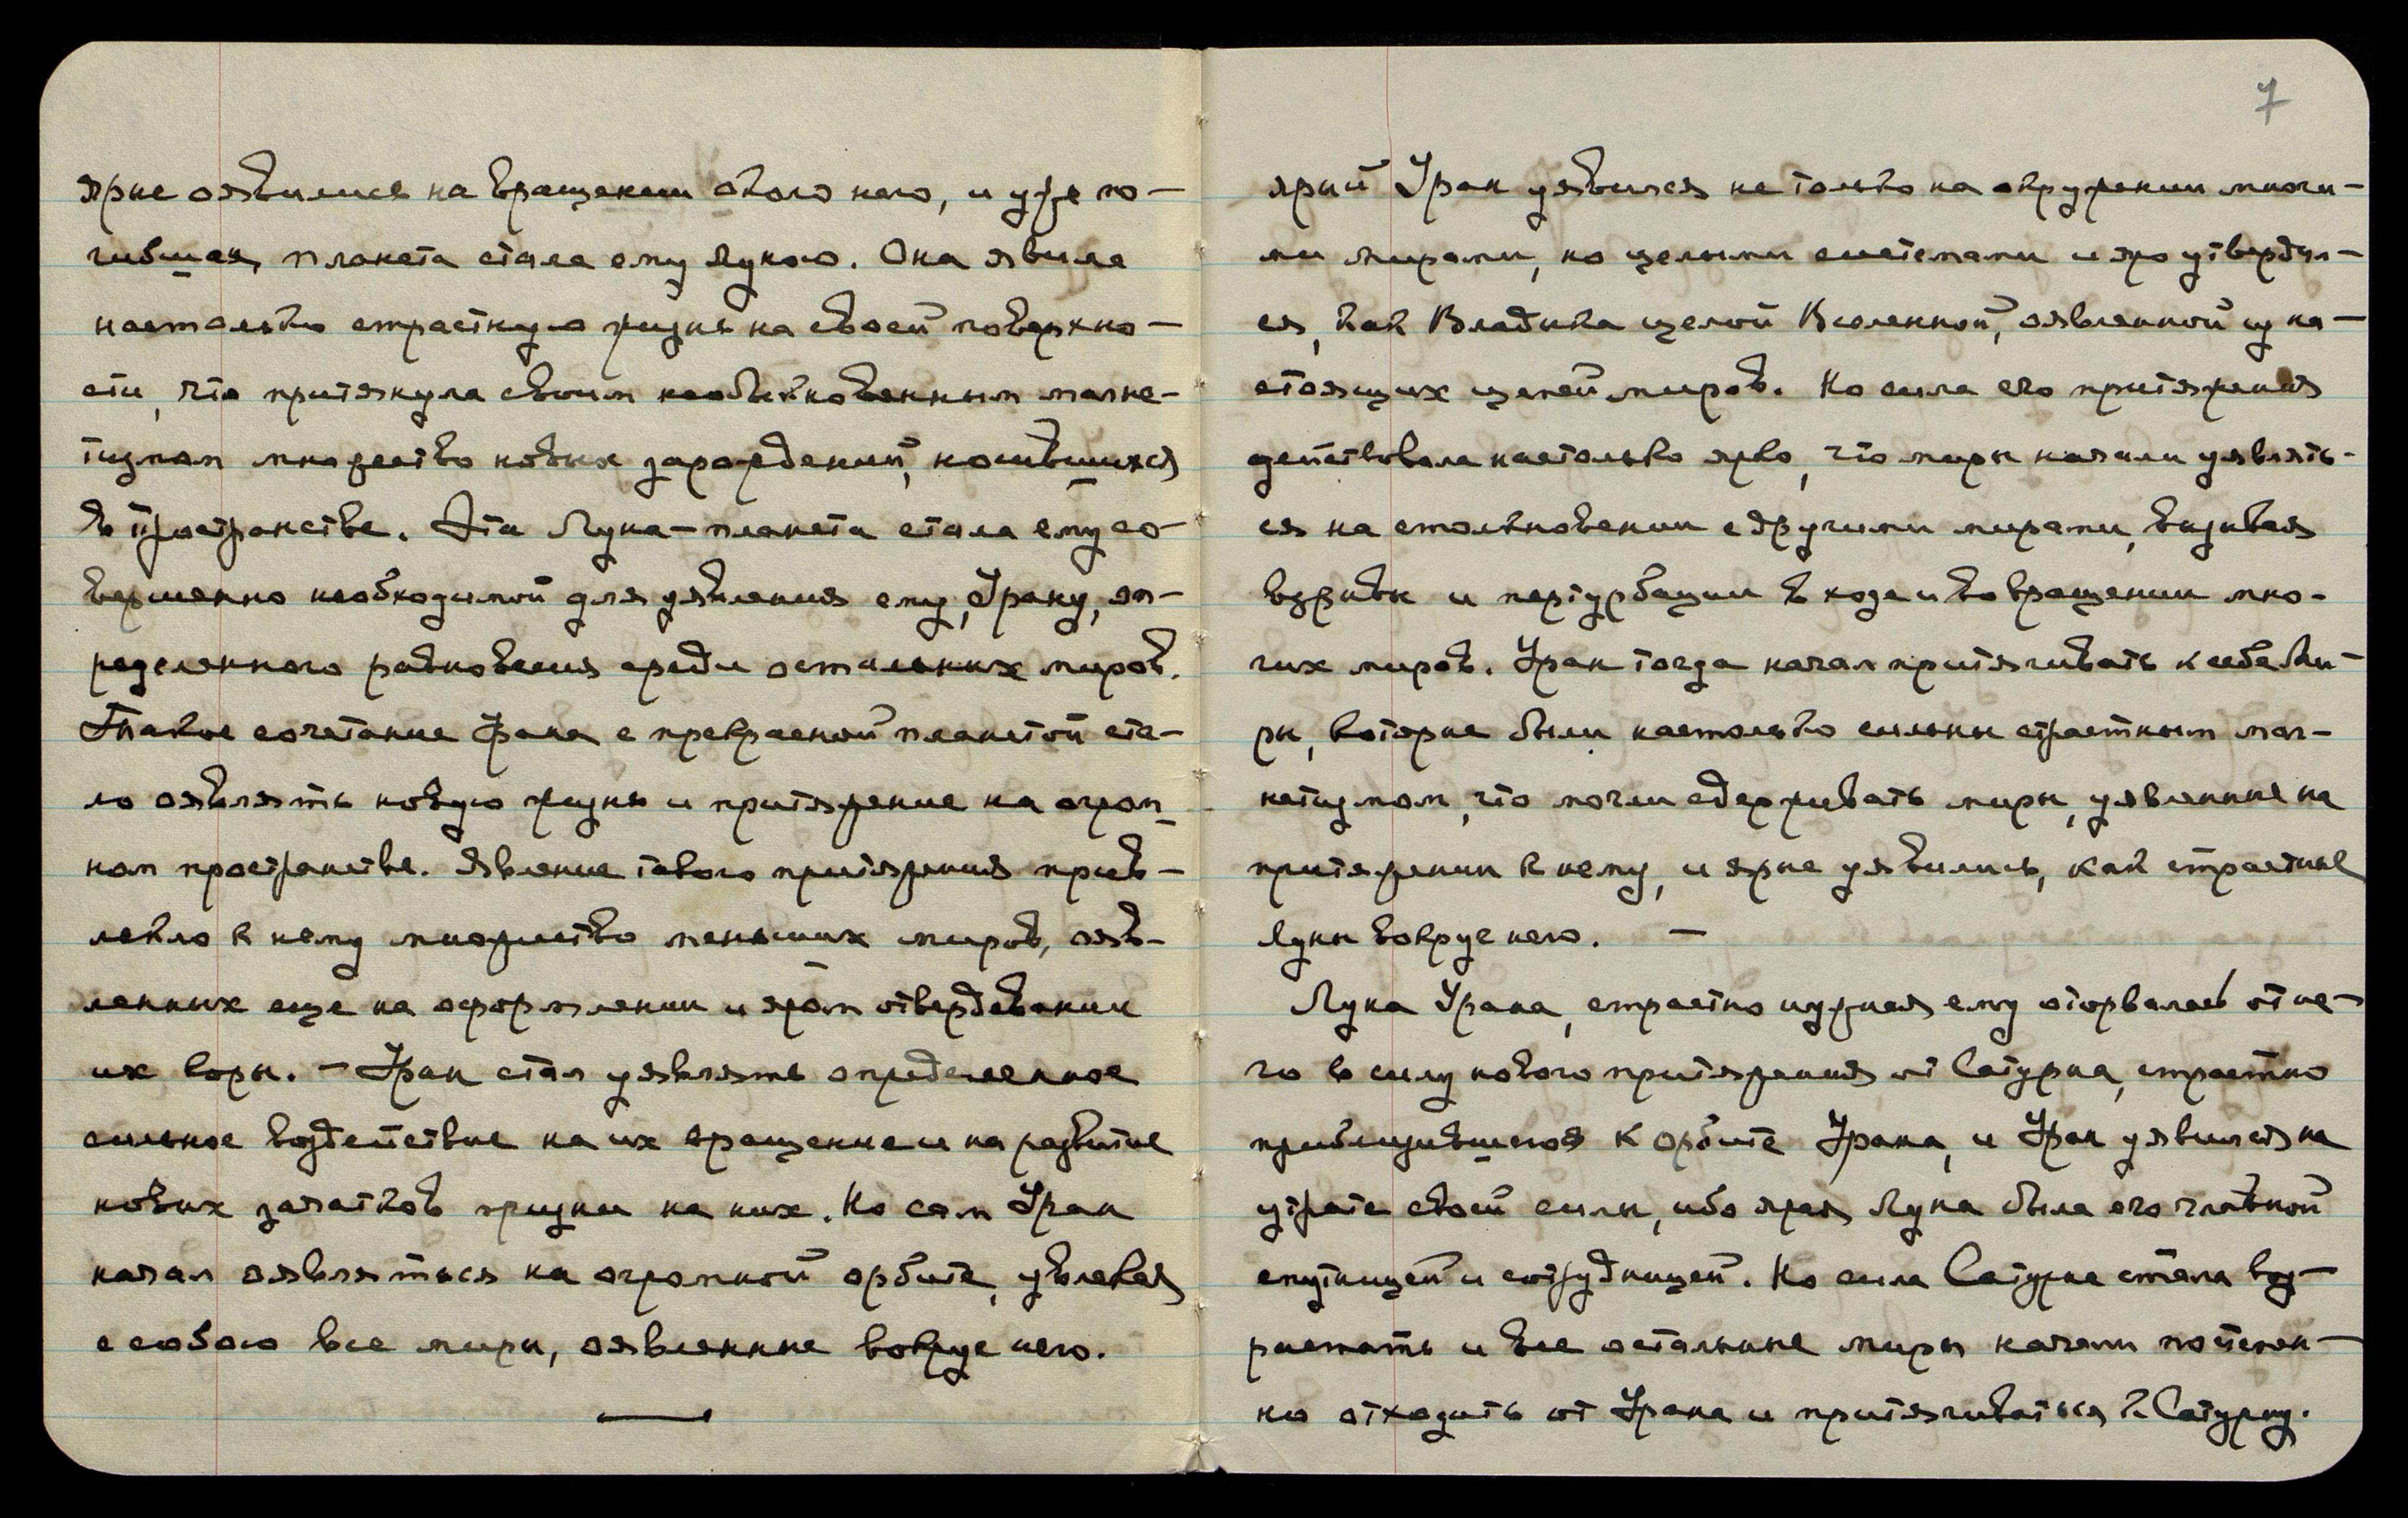 ярые оявились на вращении около него, и уже по-
гибшая, планета стала ему Луною. Она явила
настолько страстную жизнь на своей поверхно-
сти, что притянула своим необыкновенным магне-
тизмом множество новых зарождений, носившихся
в пространстве. Эта Луна-планета стала ему со-
вершенно необходимой для уявления ему, Урану, оп-
ределенного равновесия среди остальных миров.
Такое сочетание Урана с прекрасной планетой ста-
ло оявлять новую жизнь и притяжение на огром
ном пространстве. Явление такого притяжения прив-
лекло к нему множество меньших миров, ояв-
ленных еще на оформлении и яром отвердевании
их коры. — Уран стал уявлять определенное
сильное воздействие на их вращение и на развитие
новых зачатков жизни на них. Но сам Уран
начал оявляться на огромной орбите, увлекая
с собою все миры, оявленные вокруг него.
—
7
ярый Уран уявился не только на окружении многи-
ми мирами, но целыми системами и яро утвердил-
ся, как Владыка целой Вселенной, оявленной из на-
стоящих цепей миров. Но сила его притяжения
действовала настолько ярко, что миры начали уявлять-
ся на столкновении с другими мирами, вызывая
взрывы и пертурбации в ходе и во вращении мно-
гих миров. Уран тогда начал притягивать к себе Ми-
ры, которые были настолько сильны страстным маг-
нетизмом, что могли сдерживать миры, уявленные на
притяжении к нему, и ярые уявились, как страстные
Луны вокруг него. —
Луна Урана, страстно нужная ему оторвалась от не-
го в силу нового притяжения от Сатурна, страстно
приблизившегося к орбите Урана, и Уран уявился на
утрате своей силы, ибо ярая Луна была его главной
спутницей и сотрудницей. Но сила Сатурна стала воз-
растать и все остальные миры начали постепен-
но отходить от Урана и притягиваться к Сатурну.